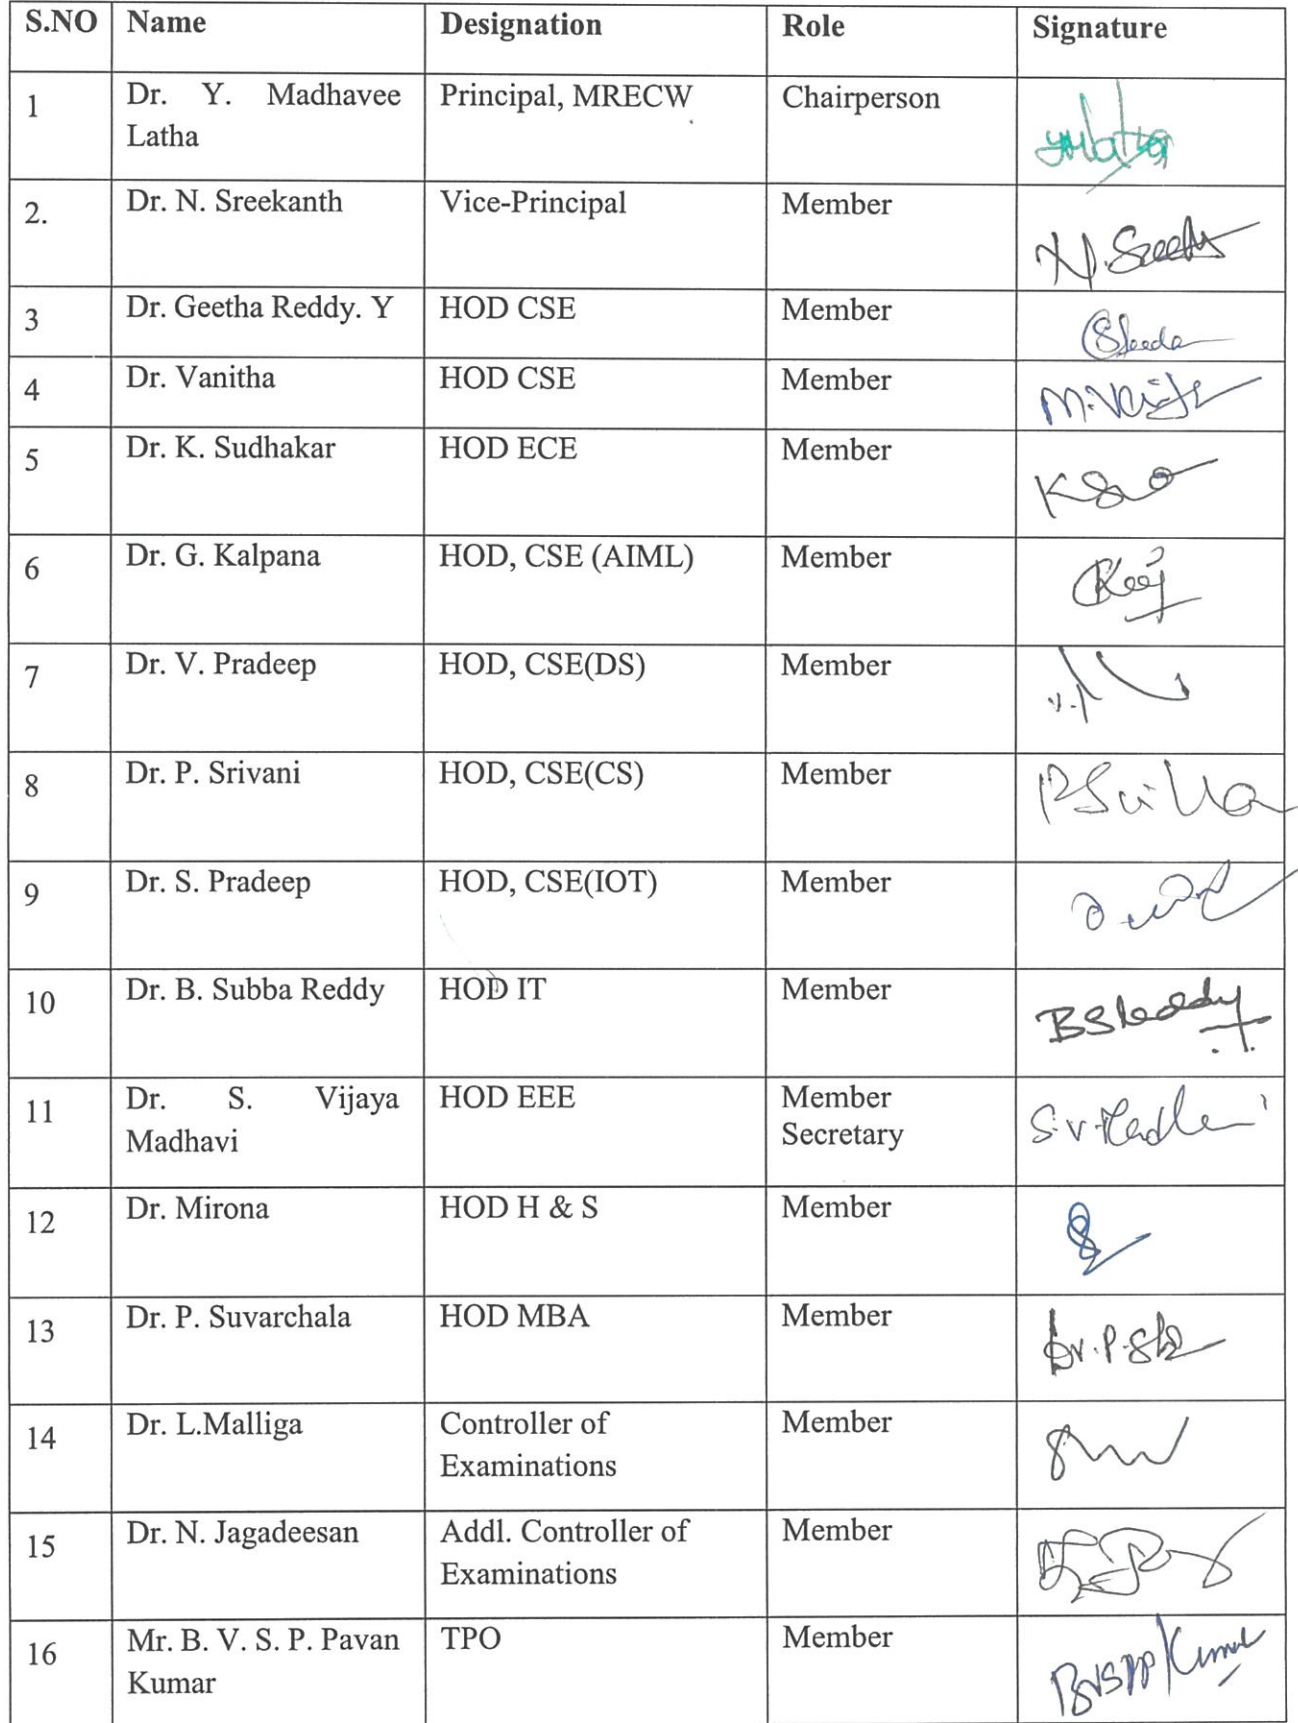 S.NO Name Designation Role Signature
1 Dr. Y. Madhavee Principal, MRECW Chairperson
Latha
2. Dr. N. Sreekanth Vice-Principal Member
3 Dr. Geetha Reddy. Y HOD CSE Member
4 Dr. Vanitha HOD CSE Member
5 Dr. K. Sudhakar HOD ECE Member
6 Dr. G. Kalpana HOD, CSE (AIML) Member
7 Dr. V. Pradeep HOD, CSE(DS) Member
8 Dr. P. Srivani HOD, CSE(CS) Member
9 Dr. S. Pradeep HOD, CSE(IOT) Member
10 Dr. B. Subba Reddy HOD IT Member BSReddy
11 Dr. S. Vijaya HOD EEE Member
Madhavi Secretary
12 Dr. Mirona HOD H & S Member
13 Dr. P. Suvarchala HOD MBA Member
14 Dr. L.Malliga Controller of Member
Examinations
15 Dr. N. Jagadeesan Addl. Controller of Member
Examinations
16 Mr. B. V. S. P. Pavan TPO Member BVSPP Kumar
Kumar